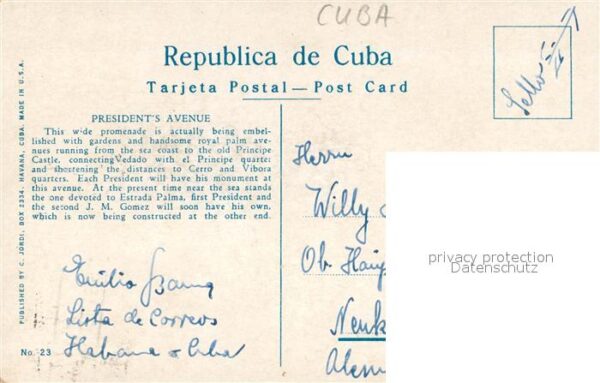 CUBA
Republica de Cuba
Tarjeta Postal — Post Card
Sello
PRESIDENT'S AVENUE
This wide promenade is actually being embel-
lished with gardens and handsome royal palm ave-
nues running from the sea coast to the old Principe
Castle, connecting Vedado with el Principe quarter
and shortening the distances to Cerro and Vibora
quarters. Each President will have his monument at
this avenue. At the present time near the sea stands
the one devoted to Estrada Palma, first President and
the second J. M. Gomez will soon have his own,
which is now being constructed at the other end.
Emilio
Lista de Correos
Habana Cuba
No. 23
PUBLISHED BY C. JORDI, BOX 2334, HAVANA, CUBA. MADE IN U.S.A.
Herrn
Willy
Ob. Hain
Neuk
Alem
privacy protection
Datenschutz